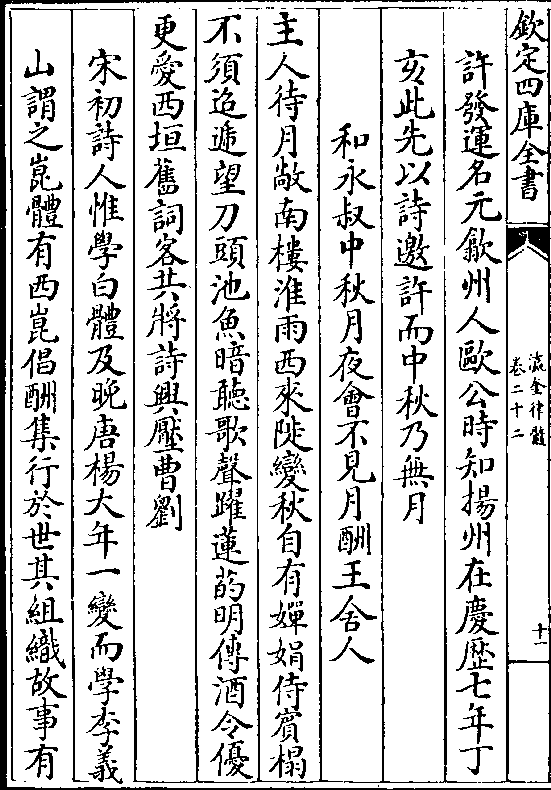 欽定四庫全書
瀛奎律髓
卷二十二
十一
許發運名元歙州人歐公時知揚州在慶歴七年丁
亥此先以詩邀許而中秋乃無月
和永叔中秋月夜會不見月酬王舍人
主人待月敞南樓淮雨西來陡變秋自有嬋娟侍賓榻
不須迢遞望刀頭池魚暗聽歌聲躍蓮菂明傳酒令優
更愛西垣舊詞客共將詩興壓曹劉
宋初詩人惟學白體及晚唐楊大年一變而學李義
山謂之崑體有西崑倡酬集行於世其組織故事有